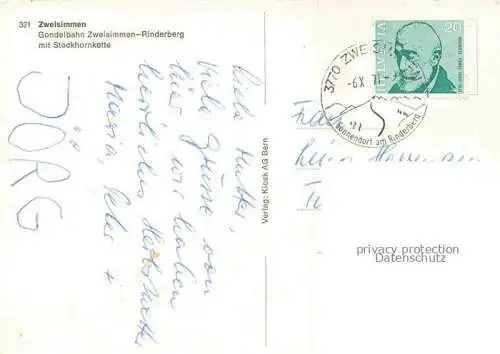 321 Zweisimmen
Gondelbahn Zweisimmen–Rinderberg
mit Stockhornkette
Liebe Mutter,
Viele Grüsse von
hier wir haben
herrliches Herbstwetter
Maria, Peter +
JÖRG
Verlag: Kiosk AG Bern
HELVETIA
20
3770 ZWEISIMMEN
-6.X.71.-
Sonnendorf am Rinderberg
Frau
privacy protection
DATENSCHUTZ